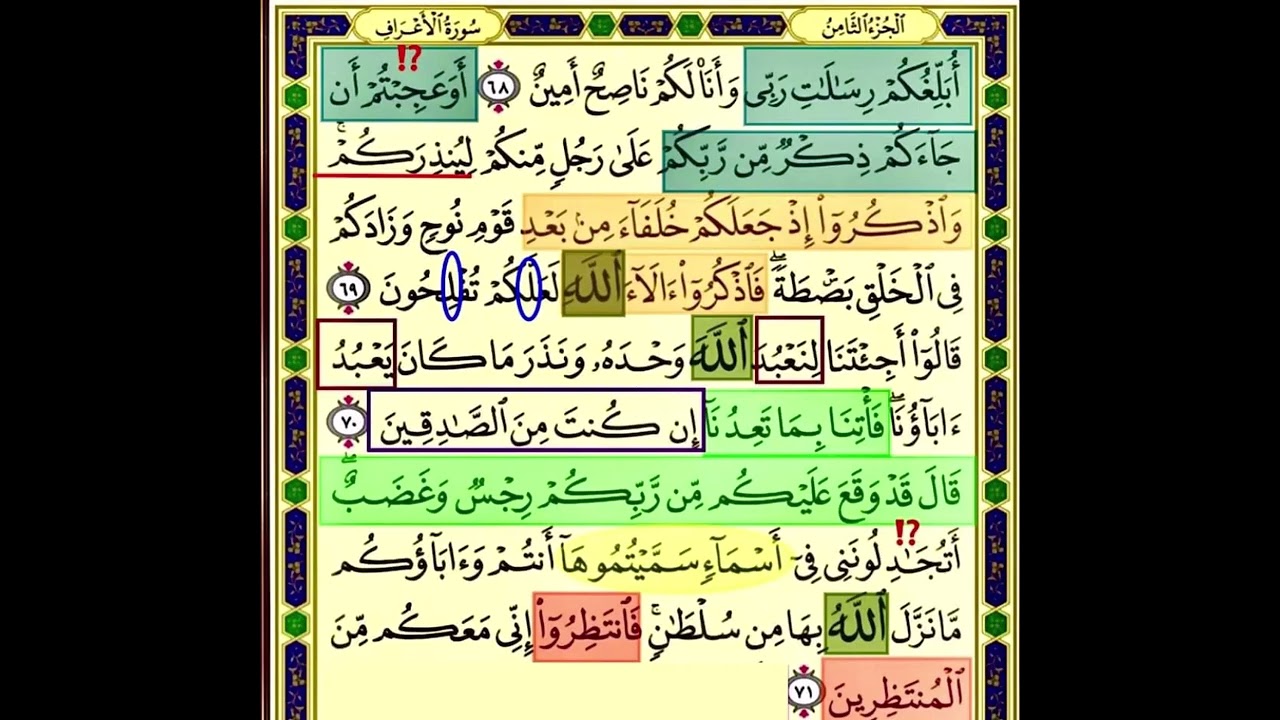 الْجُزْءُ الثَّامِنُ
سُورَةُ الْأَعْرَافِ
⁉
أُبَلِّغُكُمْ رِسَٰلَٰتِ رَبِّى وَأَنَا۠ لَكُمْ نَاصِحٌ أَمِينٌ ٦٨ أَوَعَجِبْتُمْ أَن
جَآءَكُمْ ذِكْرٌ مِّن رَّبِّكُمْ عَلَىٰ رَجُلٍ مِّنكُمْ لِيُنذِرَكُمْ ۚ
وَٱذْكُرُوٓا۟ إِذْ جَعَلَكُمْ خُلَفَآءَ مِنۢ بَعْدِ قَوْمِ نُوحٍ وَزَادَكُمْ
فِى ٱلْخَلْقِ بَصْۜطَةً ۖ فَٱذْكُرُوٓا۟ ءَالَآءَ ٱللَّهِ لَعَلَّكُمْ تُفْلِحُونَ ٦٩
قَالُوٓا۟ أَجِئْتَنَا لِنَعْبُدَ ٱللَّهَ وَحْدَهُۥ وَنَذَرَ مَا كَانَ يَعْبُدُ
ءَابَآؤُنَا ۖ فَأْتِنَا بِمَا تَعِدُنَآ إِن كُنتَ مِنَ ٱلصَّٰدِقِينَ ٧٠
قَالَ قَدْ وَقَعَ عَلَيْكُم مِّن رَّبِّكُمْ رِجْسٌ وَغَضَبٌ ۖ
⁉
أَتُجَٰدِلُونَنِى فِىٓ أَسْمَآءٍ سَمَّيْتُمُوهَآ أَنتُمْ وَءَابَآؤُكُم
مَّا نَزَّلَ ٱللَّهُ بِهَا مِن سُلْطَٰنٍ ۚ فَٱنتَظِرُوٓا۟ إِنِّى مَعَكُم مِّنَ
ٱلْمُنتَظِرِينَ ٧١